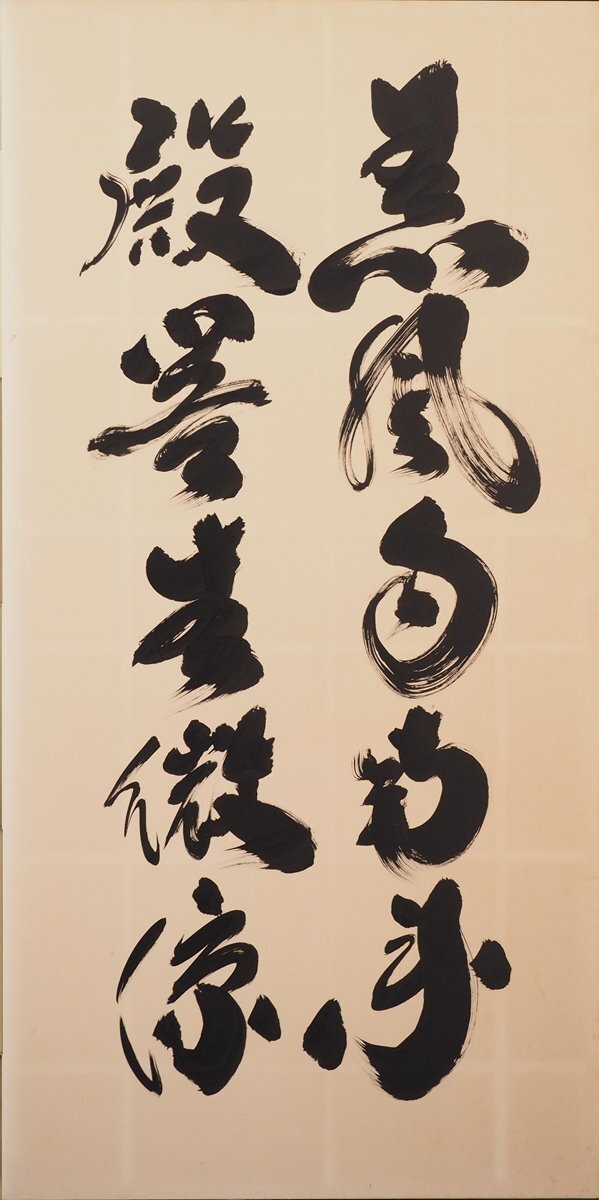 薫風自南来
殿閣生微涼